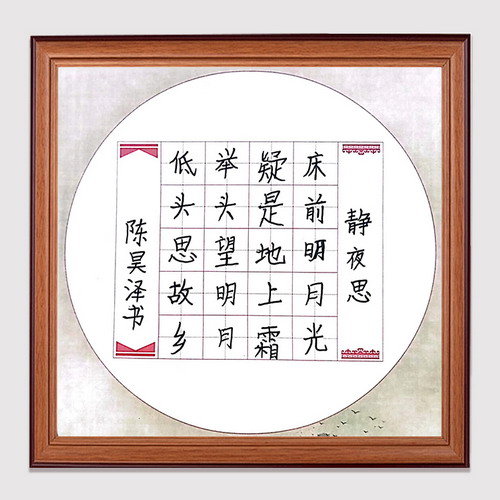 静夜思
床前明月光
疑是地上霜
举头望明月
低头思故乡
陈昊泽书